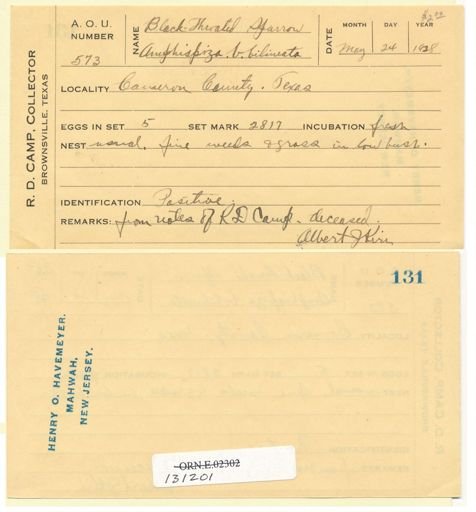 A. O. U. NUMBER 573
NAME Black-Throated Sparrow
Amphispiza b. bilineata
DATE MONTH DAY YEAR
May 24 1928
LOCALITY Cameron County. Texas
EGGS IN SET 5 SET MARK 2817 INCUBATION fresh
NEST usual. fine weeds & grass in low bush.
IDENTIFICATION Positive
REMARKS: from notes of R D Camp - deceased.
Albert J Kirn
R. D. CAMP, COLLECTOR
BROWNSVILLE, TEXAS
131
HENRY O. HAVEMEYER.
MAHWAH,
NEW JERSEY.
ORN.E.02302
131201